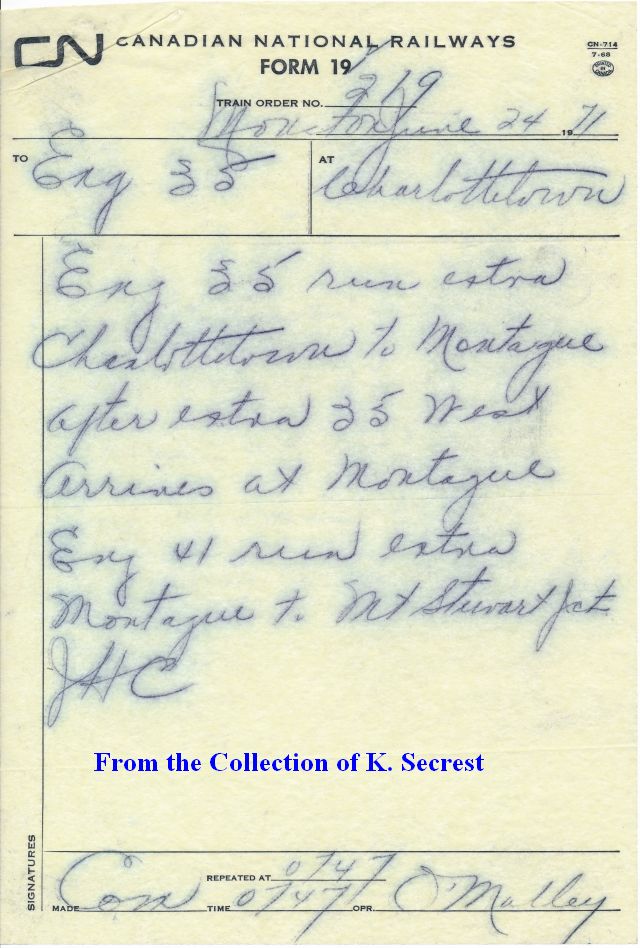 CN CANADIAN NATIONAL RAILWAYS
CN-714
7-68
PRINTED IN CANADA
FORM 19
TRAIN ORDER NO. 219
Moncton June 24 1971
TO Eng 35 AT Charlottetown
Eng 35 run extra
Charlottetown to Montague
after extra 35 West
Arrives at Montague
Eng 41 run extra
Montague to Mt Stewart Jct
JHC
From the Collection of K. Secrest
SIGNATURES
REPEATED AT 0747
MADE Com TIME 0747 OPR. O'Malley